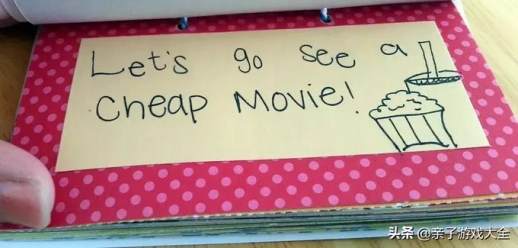 Let's go see a
cheap Movie!
头条 @亲子游戏大全